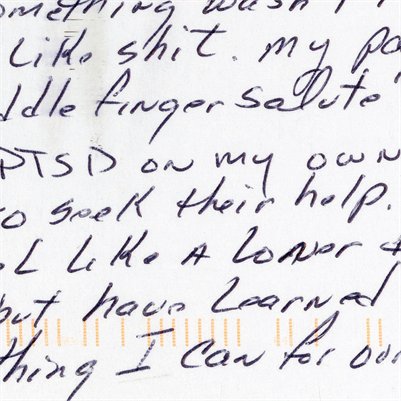 omething wasn't
like shit. my pa
ddle finger salute
PTSD on my own
to seek their help.
el like a loner &
but have learned
thing I can for our